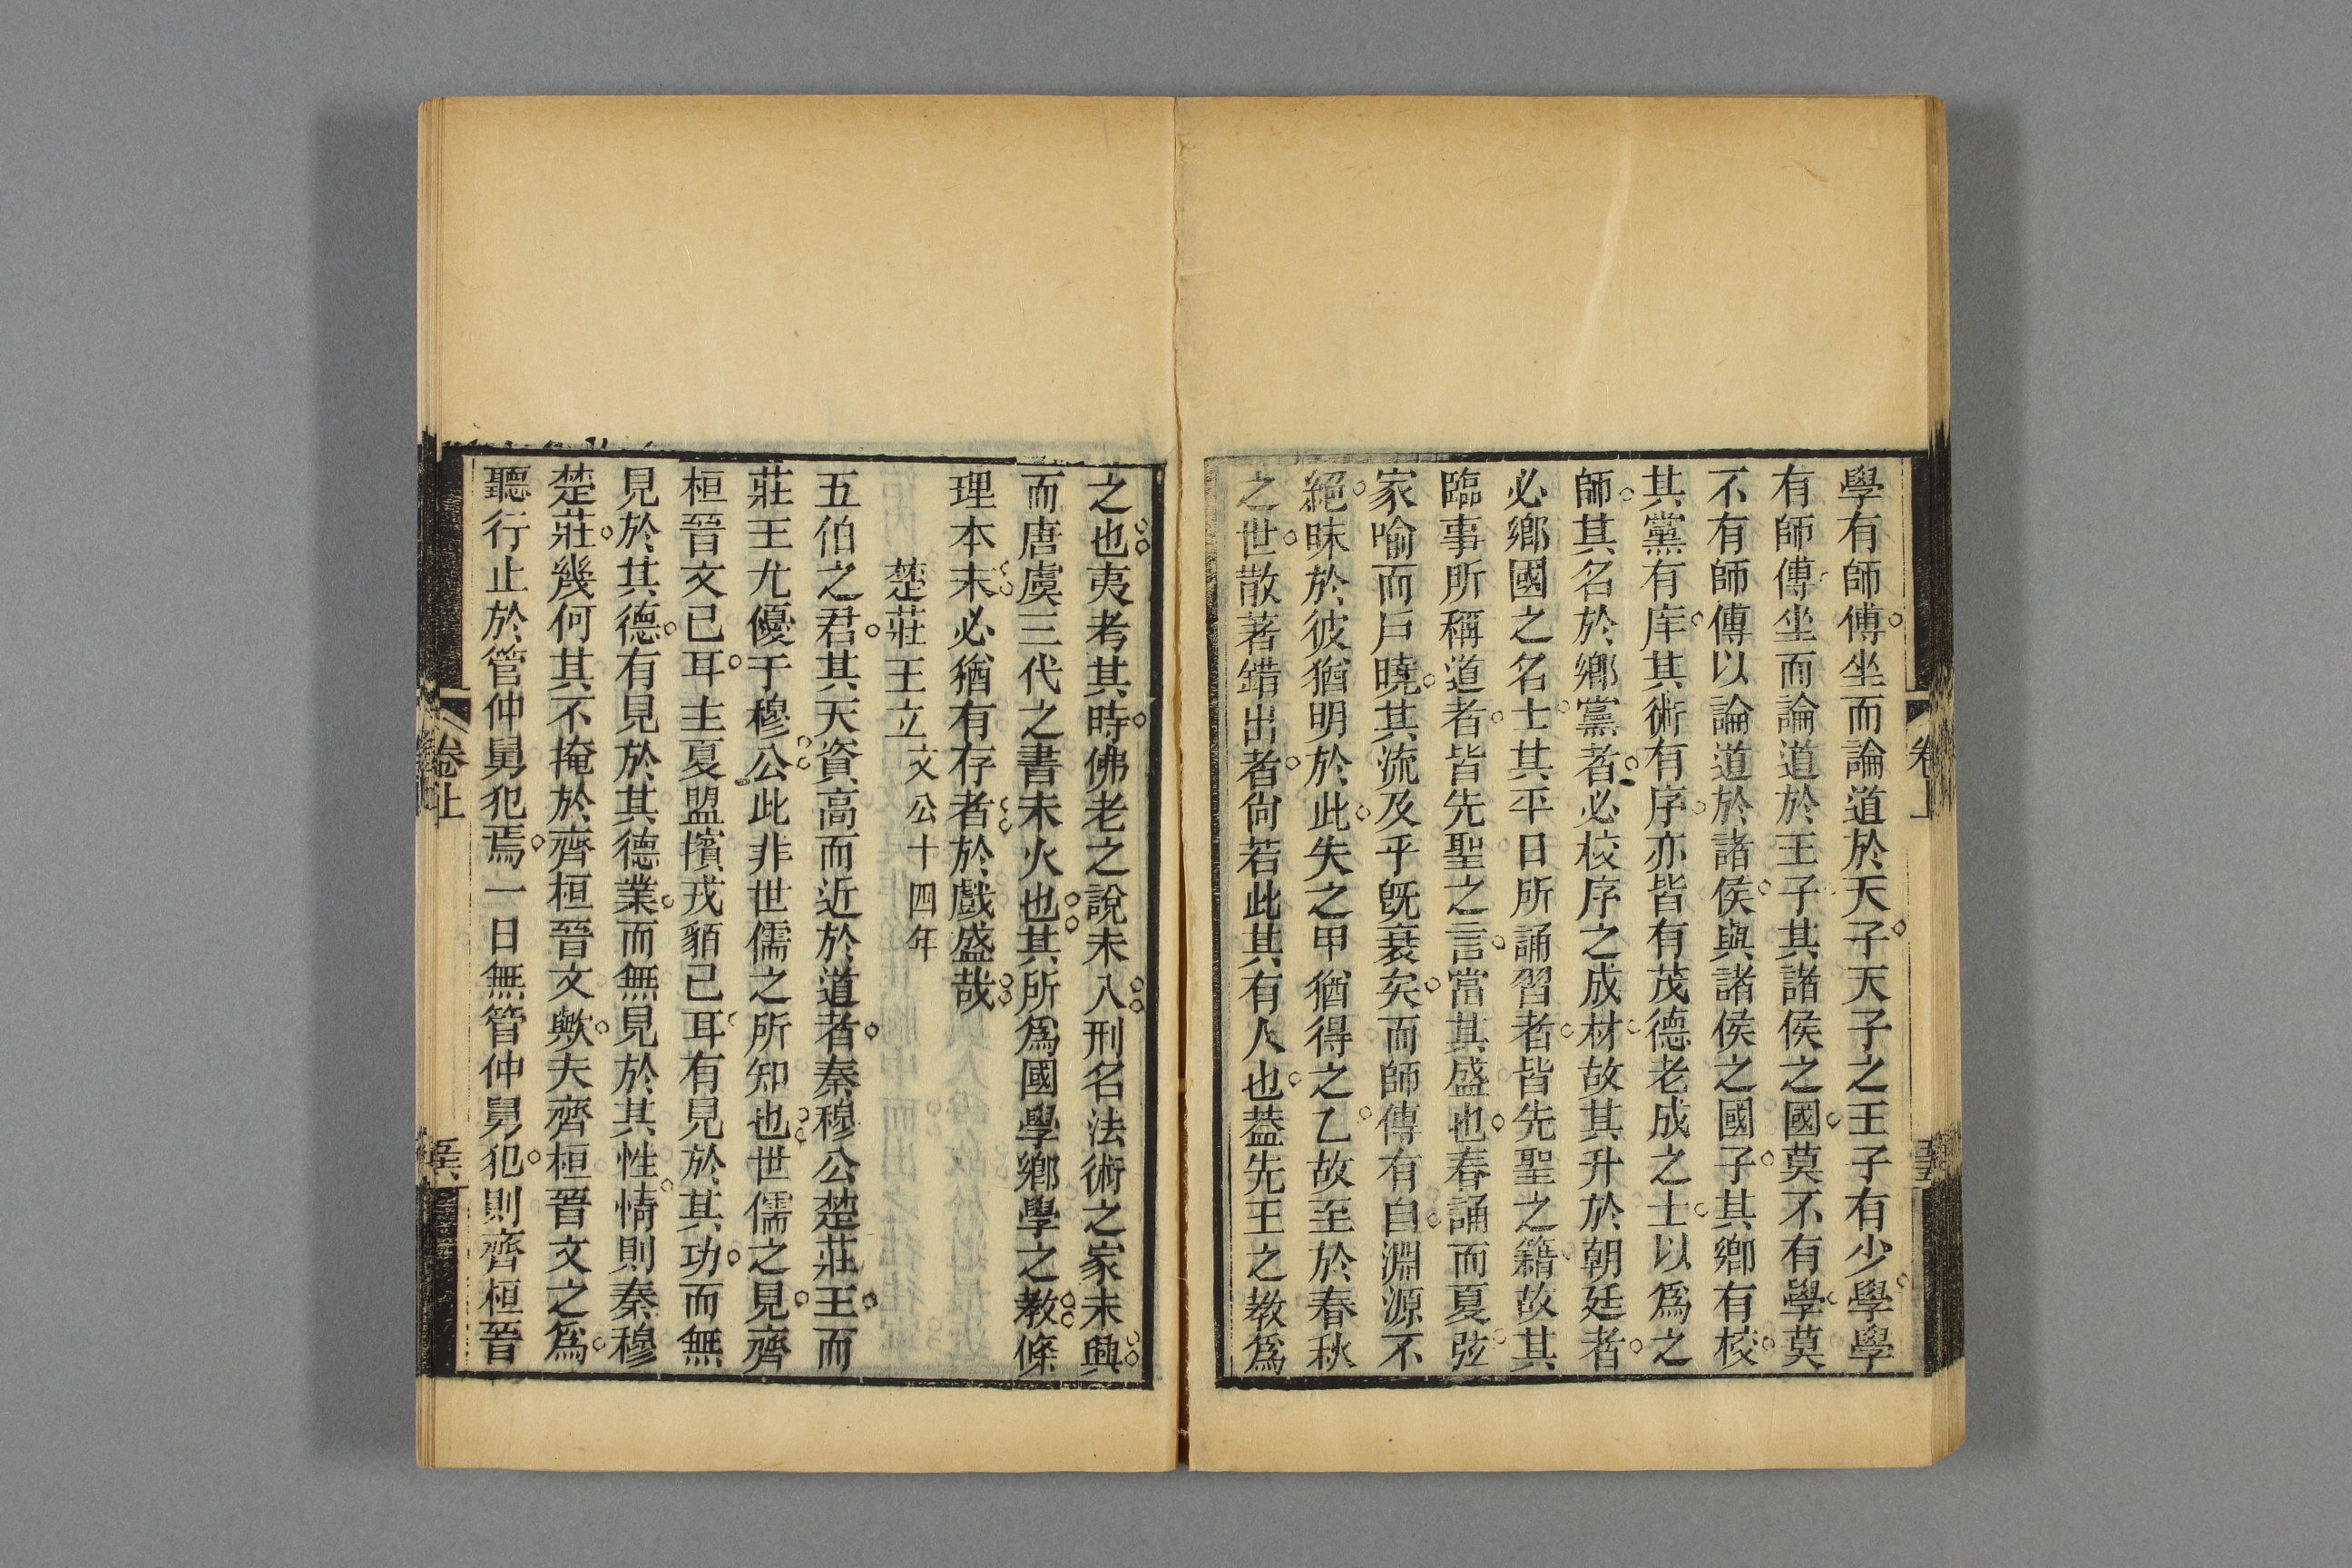 學有師傅坐而論道於天子天子之王子有少學學
有師傅坐而論道於王子其諸侯之國莫不有學莫
不有師傅以論道於諸侯與諸侯之國子其鄉有校
其黨有庠其術有序亦皆有茂德老成之士以為之
師其名於鄉黨者必校序之成材故其升於朝廷者
必鄉國之名士其平日所誦習者皆先聖之籍故其
臨事所稱道者皆先聖之言當其盛也春誦而夏弦
家喻而戶曉其流及乎既衰矣而師傅有自淵源不
絕昧於彼猶明於此失之甲猶得之乙故至於春秋
之世散著錯出者尙若此其有人也葢先王之教爲
卷上
之也夷考其時佛老之說未入刑名法術之家未興
而唐虞三代之書未火也其所爲國學鄉學之教條
理本末必猶有存者於戲盛哉
楚莊王立 文公十四年
五伯之君其天資高而近於道者秦穆公楚莊王而
莊王尤優于穆公此非世儒之所知也世儒之見齊
桓晉文已耳主夏盟擯戎貊已耳有見於其功而無
見於其德有見於其德業而無見於其性情則秦穆
楚莊幾何其不掩於齊桓晉文歟夫齊桓晉文之爲
聽行止於管仲舅犯焉一日無管仲舅犯則齊桓晉
卷上